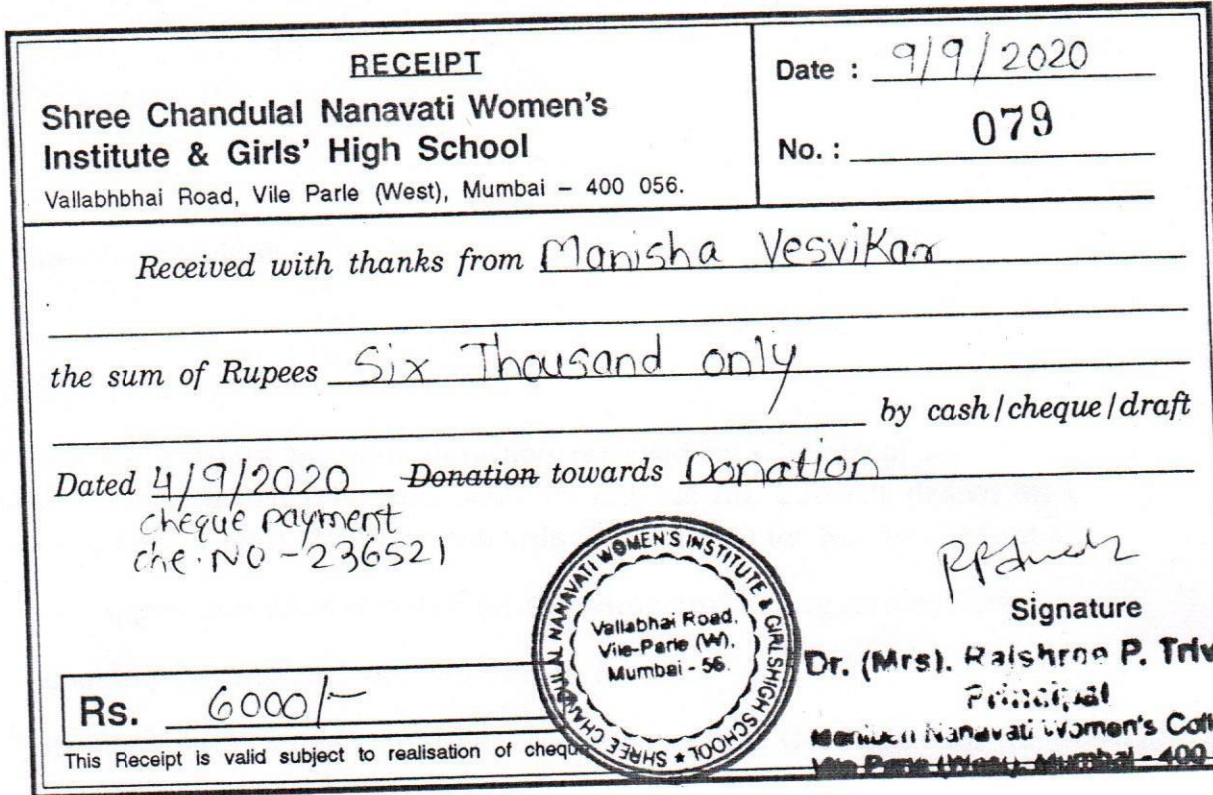 RECEIPT
Shree Chandulal Nanavati Women's
Institute & Girls' High School
Vallabhbhai Road, Vile Parle (West), Mumbai – 400 056.
Date : 9/9/2020
No. : 079
Received with thanks from Manisha Vesvikar
the sum of Rupees Six Thousand only
by cash/cheque/draft
Dated 4/9/2020 Donation towards Donation
cheque payment
che.NO - 236521
SHREE CHANDULAL NANAVATI WOMEN'S INSTITUTE & GIRLSHIGH SCHOOL ★
Vallabhai Road,
Vile-Parle (W),
Mumbai - 56.
Signature
Dr. (Mrs). Rajshree P. Triv
Principal
Maniben Nanavati Women's Coll
Vile Parle (West), Mumbai - 400
Rs. 6000/-
This Receipt is valid subject to realisation of cheque